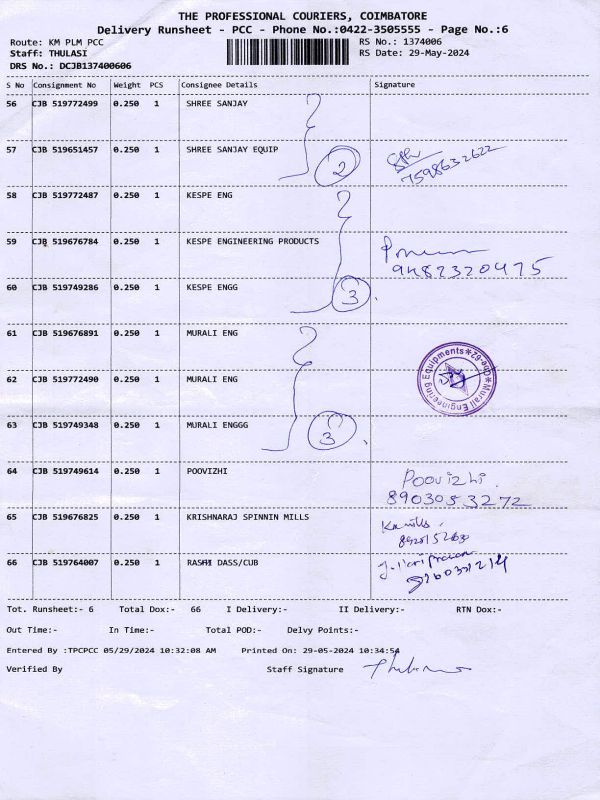 THE PROFESSIONAL COURIERS, COIMBATORE
Delivery Runsheet - PCC - Phone No.:0422-3505555 - Page No.:6
Route: KM PLM PCC
RS No.: 1374006
Staff: THULASI
RS Date: 29-May-2024
DRS No.: DCJB137400606
S No Consignment No Weight PCS Consignee Details Signature
56 CJB 519772499 0.250 1 SHREE SANJAY
57 CJB 519651457 0.250 1 SHREE SANJAY EQUIP
2
7598632622
58 CJB 519772487 0.250 1 KESPE ENG
59 CJB 519676784 0.250 1 KESPE ENGINEERING PRODUCTS
9482320475
60 CJB 519749286 0.250 1 KESPE ENGG
3
61 CJB 519676891 0.250 1 MURALI ENG
62 CJB 519772490 0.250 1 MURALI ENG
Murali Engineering Equipments
63 CJB 519749348 0.250 1 MURALI ENGGG
3
64 CJB 519749614 0.250 1 POOVIZHI
Poovizhi.
8903053272
65 CJB 519676825 0.250 1 KRISHNARAJ SPINNIN MILLS
66 CJB 519764007 0.250 1 RASHI DASS/CUB
Tot. Runsheet:- 6 Total Dox:- 66 I Delivery:- II Delivery:- RTN Dox:-
Out Time:- In Time:- Total POD:- Delvy Points:-
Entered By :TPCPCC 05/29/2024 10:32:08 AM Printed On: 29-05-2024 10:34:54
Verified By Staff Signature